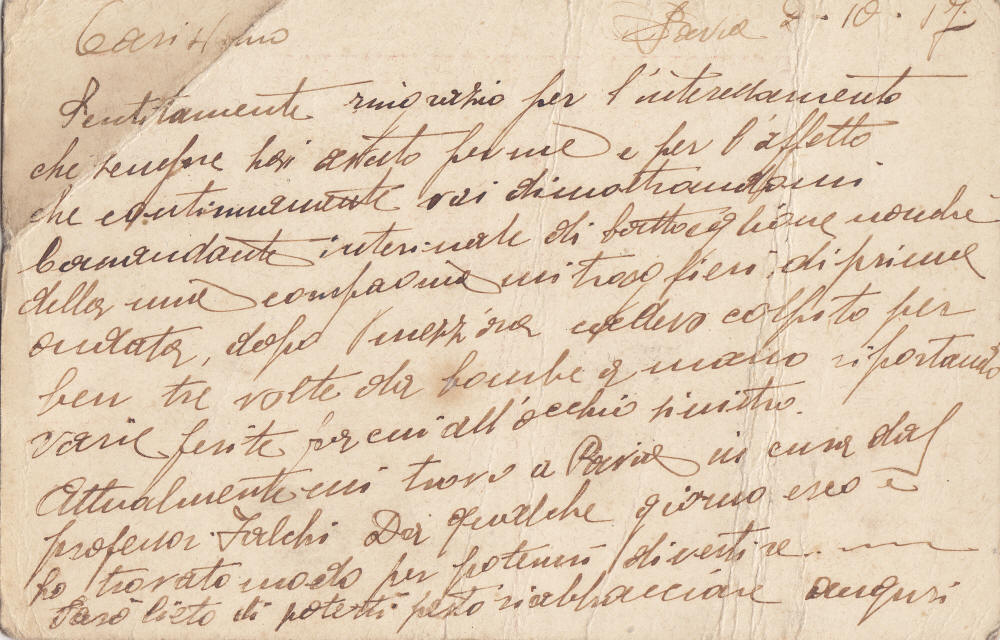 Carissimo Pavia 2-10-17
Sentitamente ringrazio per l'interessamento
che sempre hai avuto per me e per l'affetto
che continuamente vai dimostrandomi
Comandante interinale di battaglione nonchè
della mia compagnia mitraglieri di prima
ondata, dopo mezz'ora cadevo colpito per
ben tre volte da bombe a mano riportando
varie ferite fra cui all'occhio sinistro.
Attualmente mi trovo a Pavia in cura dal
professor Falchi Da qualche giorno esco e
ho trovato modo per potermi divertire.
Sarò lieto di poterti presto riabbracciare auguri